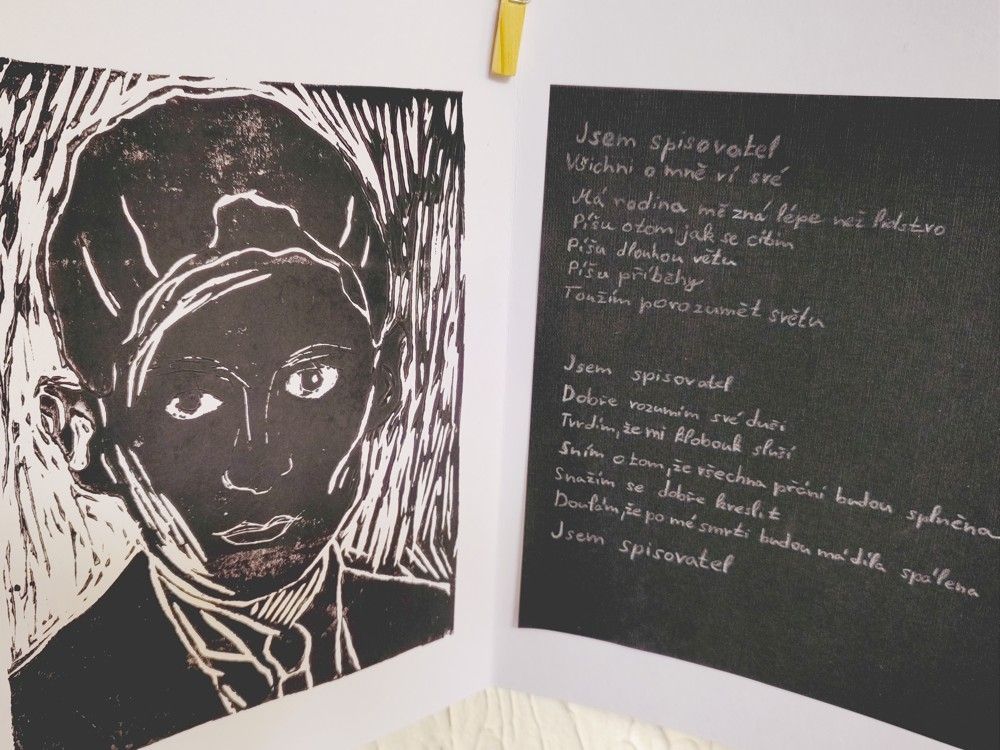 Jsem spisovatel
Všichni o mně ví své
Má rodina mě zná lépe než lidstvo
Píšu o tom jak se cítím
Píšu dlouhou větu
Píšu příběhy
Toužím porozumět světu
Jsem spisovatel
Dobře rozumím své duši
Tvrdím, že mi klobouk sluší
Sním o tom, že všechna přání budou splněna
Snažím se dobře kreslit
Doufám, že po mé smrti budou má díla spálena
Jsem spisovatel